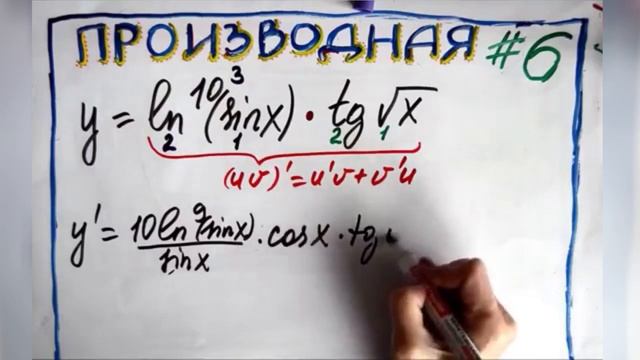 ПРОИЗВОДНАЯ #6
y = ln¹⁰(sinx) · tg√x
3
2 1 2 1
(uv)' = u'v + v'u
y' = 10ln⁹(sinx)/sinx · cosx · tg